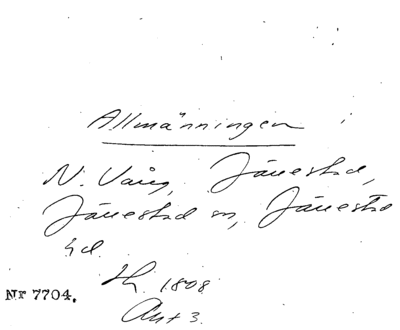 Allmänningen
N. Vång, Jänestad,
Jänestad sn, Jänestad
hd.
1808
Nr 7704.
Akt 3.